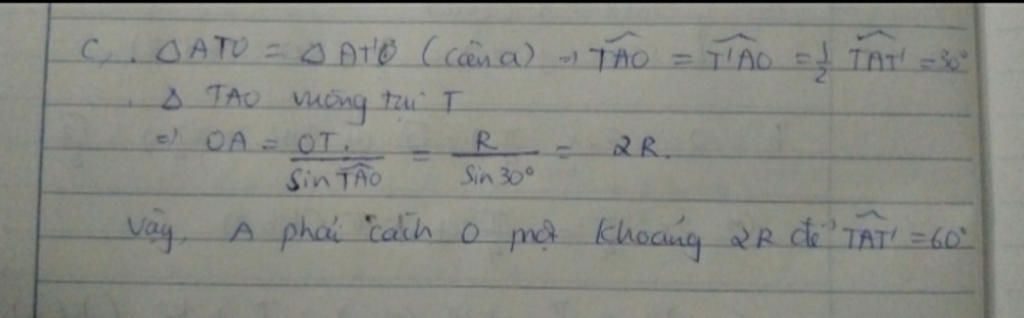 c, . △ATO = △AT'O (câu a) → \widehat{TAO} = \widehat{T'AO} = \frac{1}{2} \widehat{TAT'} = 30°
. △ TAO vuông tại T
⇒ OA = \frac{OT}{Sin \widehat{TAO}} = \frac{R}{Sin 30°} = 2R.
Vậy, A phải cách O một khoảng 2R để \widehat{TAT'} = 60°